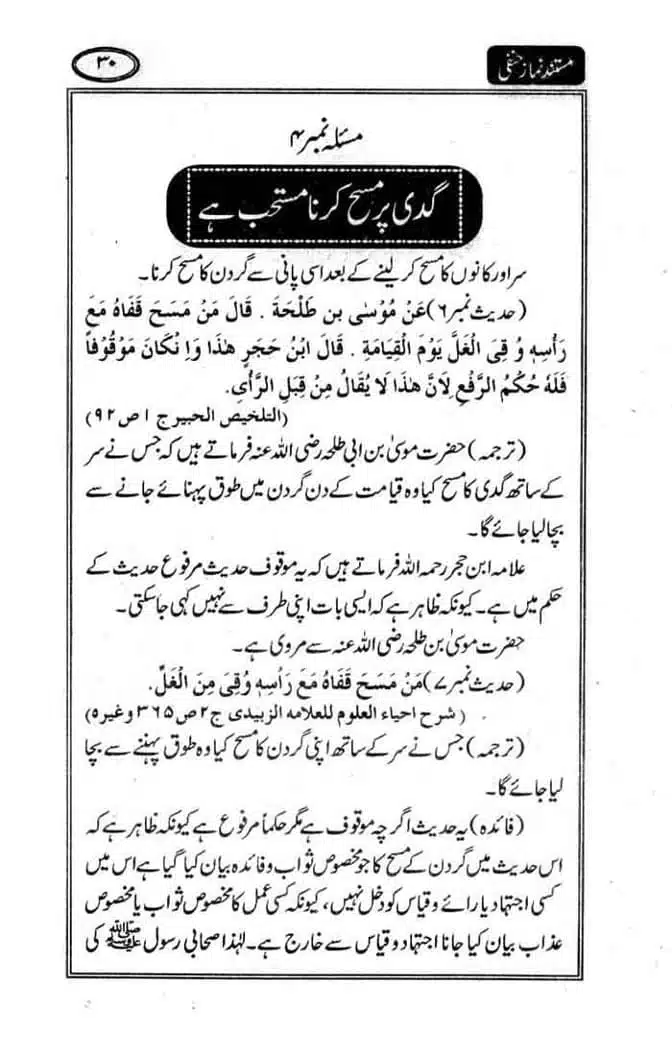 مستند نماز حنفی
۳۰
مسئلہ نمبر ۴
گدی پر مسح کرنا مستحب ہے
سر اور کانوں کا مسح کر لینے کے بعد اسی پانی سے گردن کا مسح کرنا۔
(حدیث نمبر ۶) عَنْ مُوْسٰی بن طَلْحَةَ . قَالَ مَنْ مَسَحَ قَفَاهُ مَعَ
رَأْسِهٖ وُ قِیَ الْغَلَّ یَوْمَ الْقِیَامَةِ . قَالَ ابْنُ حَجَرٍ هٰذَا وَاِ نْکَانَ مَوْقُوْفاً
فَلَهٗ حُکْمُ الرَّفْعِ لِاَنَّ هٰذَا لَا یُقَالُ مِنْ قِبَلِ الرَّأْیِ.
(التلخیص الحبیر ج ۱ ص ۹۲)
(ترجمہ) حضرت موسیٰ بن ابی طلحہ رضی اللہ عنہ فرماتے ہیں کہ جس نے سر
کے ساتھ گدی کا مسح کیا وہ قیامت کے دن گردن میں طوق پہنائے جانے سے
بچا لیا جائے گا۔
علامہ ابن حجر رحمہ اللہ فرماتے ہیں کہ یہ موقوف حدیث مرفوع حدیث کے
حکم میں ہے۔ کیونکہ ظاہر ہے کہ ایسی بات اپنی طرف سے نہیں کہی جا سکتی۔
حضرت موسیٰ بن طلحہ رضی اللہ عنہ سے مروی ہے۔
(حدیث نمبر ۷) مَنْ مَسَحَ قَفَاهُ مَعَ رَاْسِهٖ وُقِیَ مِنَ الْغَلِّ.
(شرح احیاء العلوم للعلامہ الزبیدی ج ۲ ص ۳۶۵ وغیرہ)
(ترجمہ) جس نے سر کے ساتھ اپنی گردن کا مسح کیا وہ طوق پہننے سے بچا
لیا جائے گا۔
(فائدہ) یہ حدیث اگرچہ موقوف ہے مگر حکماً مرفوع ہے کیونکہ ظاہر ہے کہ
اس حدیث میں گردن کے مسح کا جو مخصوص ثواب و فائدہ بیان کیا گیا ہے اس میں
کسی اجتہاد یا رائے و قیاس کو دخل نہیں، کیونکہ کسی عمل کا مخصوص ثواب یا مخصوص
عذاب بیان کیا جانا اجتہاد و قیاس سے خارج ہے۔ لہٰذا صحابی رسول ﷺ کی